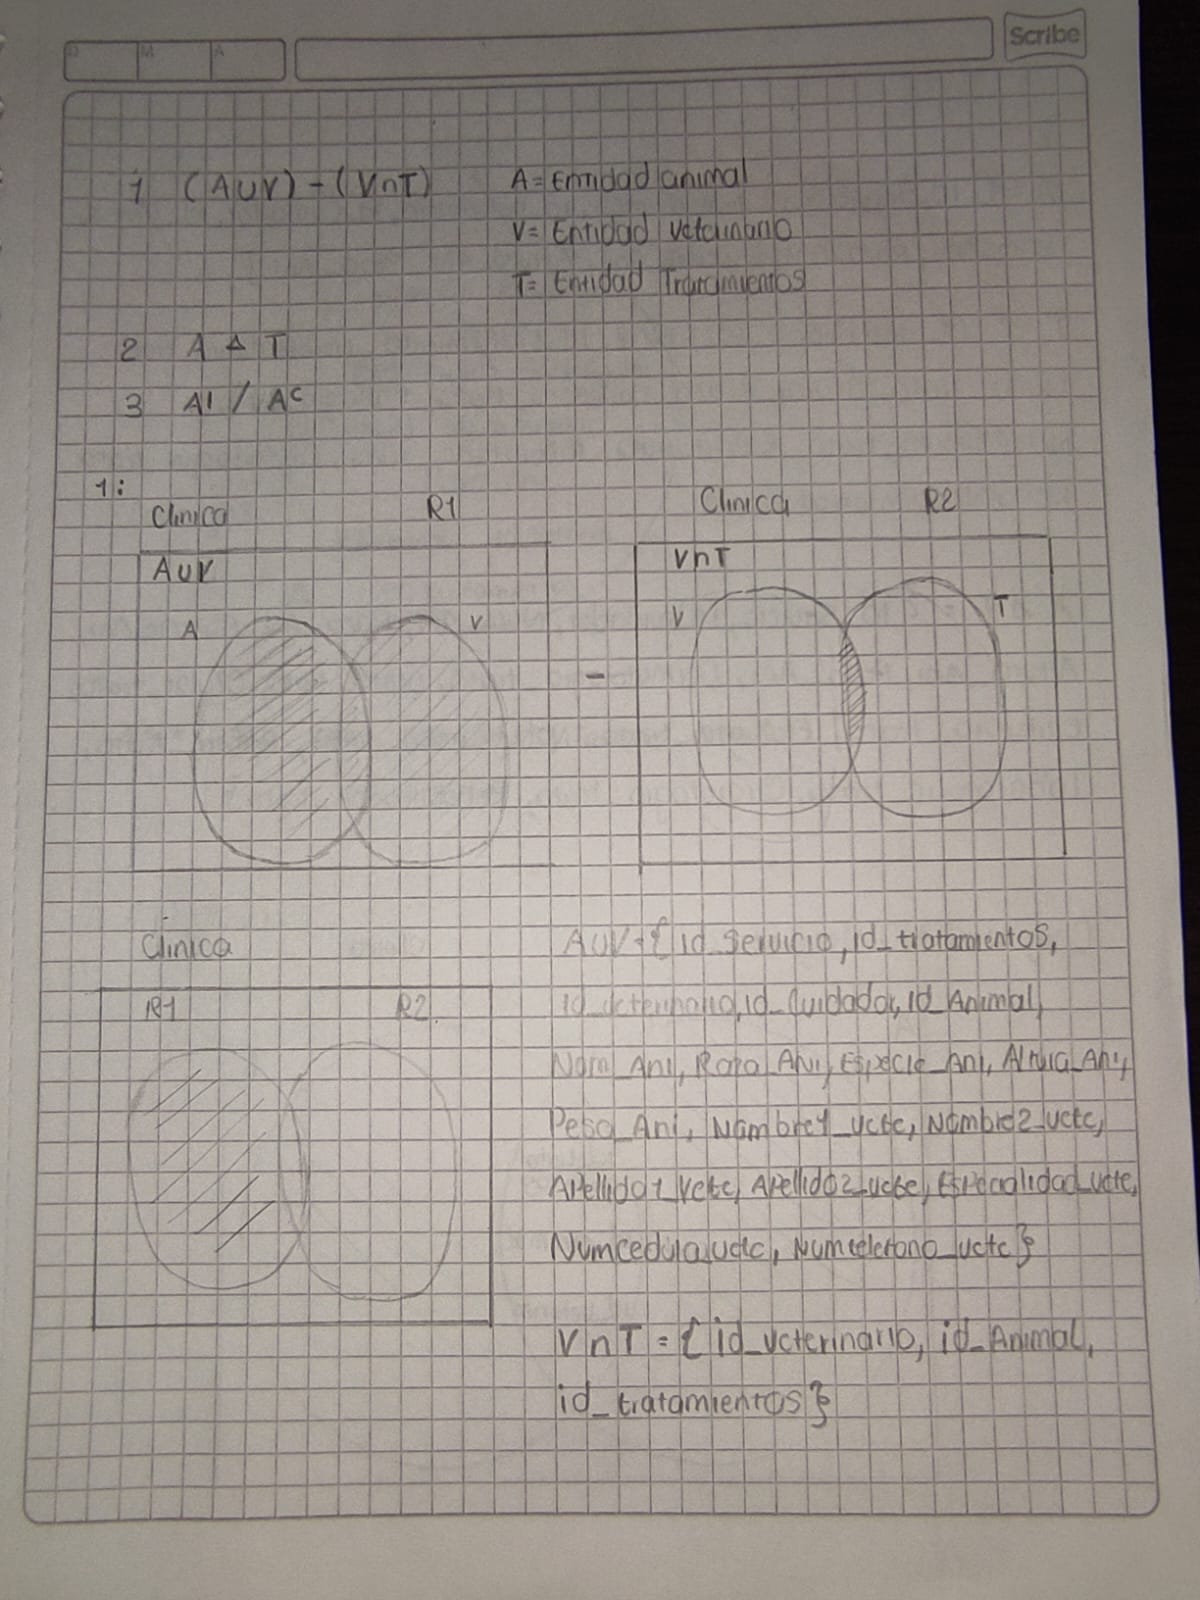 Scribe
D M A
1 (AUV) - (VnT) A= Entidad animal
V= Entidad veterinario
T= Entidad Tratamientos
2 A Δ T
3 A1 / Aᶜ
1:
Clinica R1 Clinica R2
AUV VnT
A V V T
-
Clinica
R1 R2
AUV={ id_servicio, id_tratamientos,
id_veterinario, id_Cuidador, id_Animal,
Nom_Ani, Raza_Ani, Especie_Ani, Altura_Ani,
Peso_Ani, Nombre1_vete, Nombre2_vete,
Apellido1_vete, Apellido2_vete, Especialidad_vete,
Numcedula_vete, Numtelefono_vete }
VnT = { id_veterinario, id_Animal,
id_tratamientos }